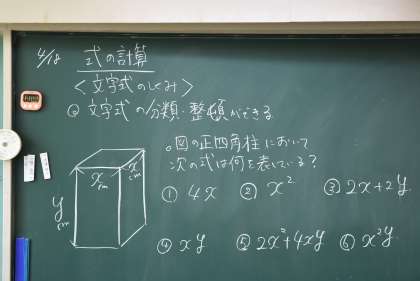 4/18 式の計算
<文字式のしくみ>
◎ 文字式の分類・整頓ができる
。図の正四角柱において
次の式は何を表している？
x cm x cm
y cm
① 4x ② x² ③ 2x+2y
④ xy ⑤ 2x²+4xy ⑥ x²y